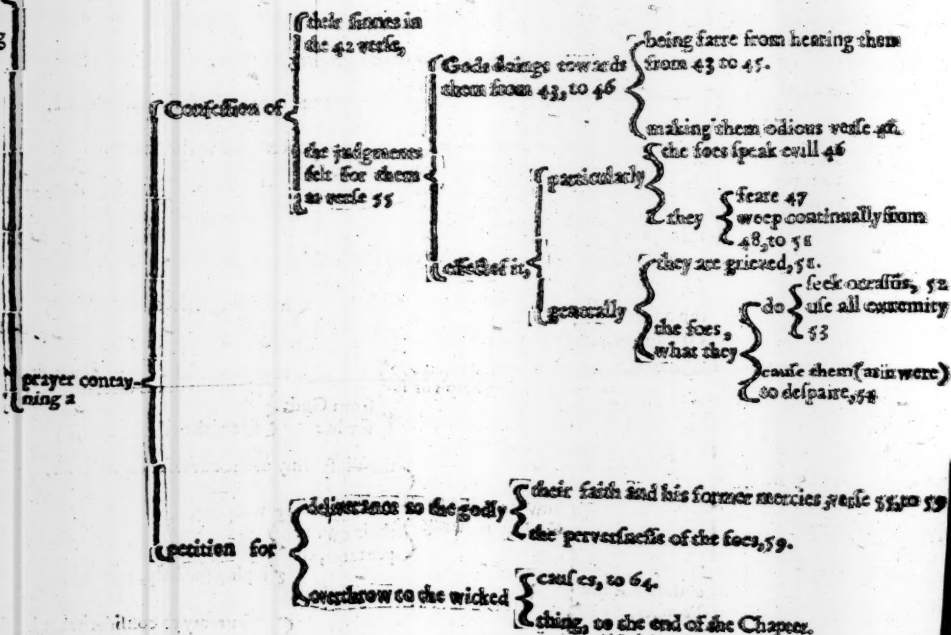 prayer contay-
ning a
Confession of
their sinnes in
the 42 verse,
the judgments
felt for them
to verse 55
Gods doings towards
them from 43, to 46
being farre from hearing them
from 43 to 45.
making them odious verse 45.
effect of it,
particularly
the foes speak evill 46
they
feare 47
weep continually from
48, to 51
generally
they are grieved, 51.
the foes,
what they
do
seek occasiōs, 52
use all extremity
53
cause them (as it were)
to despaire, 54
petition for
deliverance to the godly
their faith and his former mercies verse 55, to 59
the perversnesse of the foes, 59.
overthrow to the wicked
causes, to 64.
thing, to the end of the Chapter.